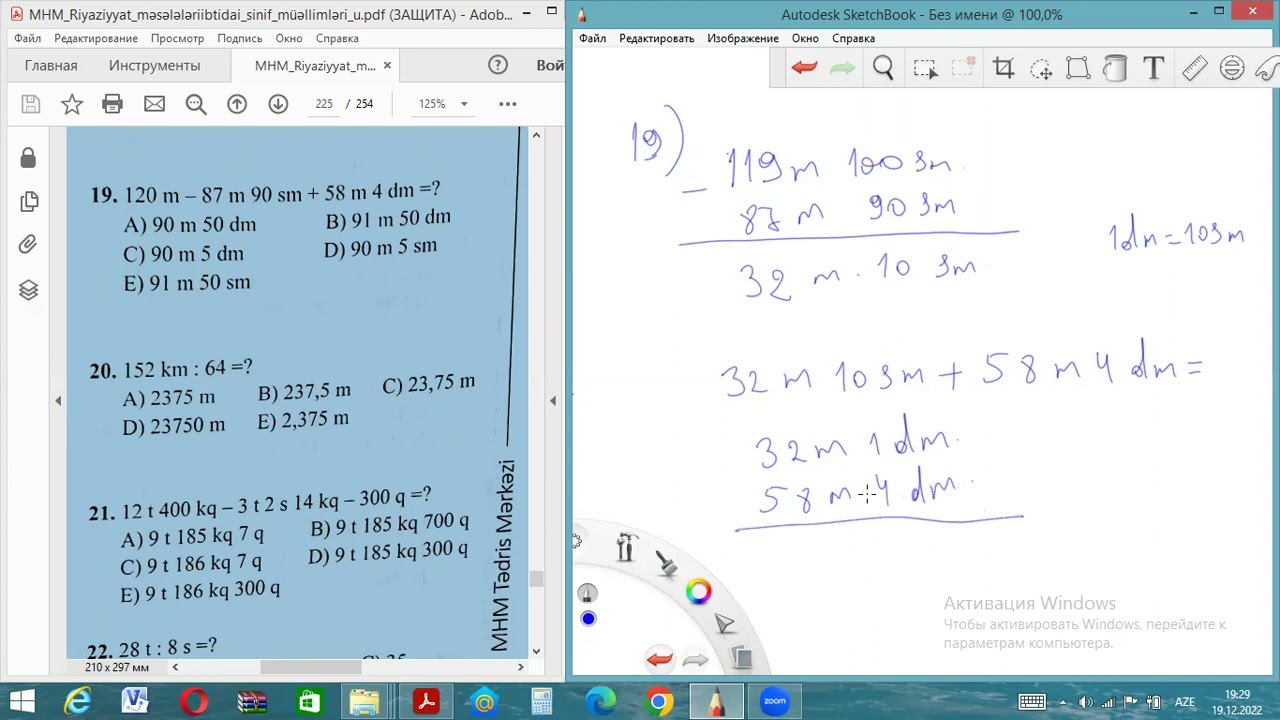 MHM_Riyaziyyat_məsələləriibtidai_sinif_müəllimləri_u.pdf (ЗАЩИТА) - Adob...
Файл Редактирование Просмотр Подпись Окно Справка
Главная Инструменты MHM_Riyaziyyat_m... × Вой
225 / 254 125%
19. 120 m – 87 m 90 sm + 58 m 4 dm =?
A) 90 m 50 dm B) 91 m 50 dm
C) 90 m 5 dm D) 90 m 5 sm
E) 91 m 50 sm
20. 152 km : 64 =?
A) 2375 m B) 237,5 m C) 23,75 m
D) 23750 m E) 2,375 m
21. 12 t 400 kq – 3 t 2 s 14 kq – 300 q =?
A) 9 t 185 kq 7 q B) 9 t 185 kq 700 q
C) 9 t 186 kq 7 q D) 9 t 185 kq 300 q
E) 9 t 186 kq 300 q
22. 28 t : 8 s =?
MHM Tədris Mərkəzi
210 x 297 мм
Autodesk SketchBook - Без имени @ 100,0%
Файл Редактировать Изображение Окно Справка
19)
119 m 100 sm
– 87 m 90 sm
32 m 10 sm
1 dm = 10 sm
32 m 10 sm + 58 m 4 dm =
32 m 1 dm
58 m 4 dm
Активация Windows
Чтобы активировать Windows, перейдите к
параметрам компьютера.
zoom
AZE
19:29
19.12.2022